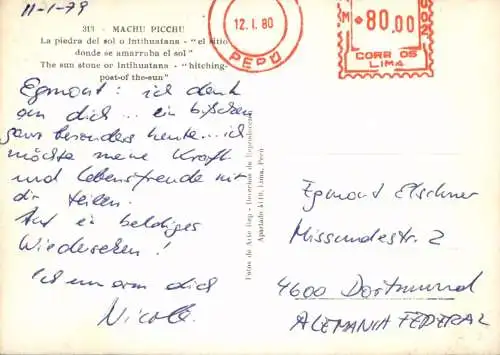 11-1-79
313 - MACHU PICCHU
La piedra del sol o Intihuatana - "el sitio
donde se amarraba el sol"
The sun stone or Intihuatana - "hitching-
post-of the-sun"
12. I. 80
PERÚ
80.00
CORREOS
LIMA
Egmont: ich denk
an dich... ein bißchen
ganz besonders heute... ich
möchte meine Kraft
und Lebensfreude mit
dir teilen.
Auf ein baldiges
Wiedersehen!
Ich umarm dich
Nicole.
Fotos de Arte Rep - Derechos de Reproducción
Apartado 4110, Lima, Perú
Egmont Elschner
Missundestr. 2
4600 Dortmund
ALEMANIA FEDERAL